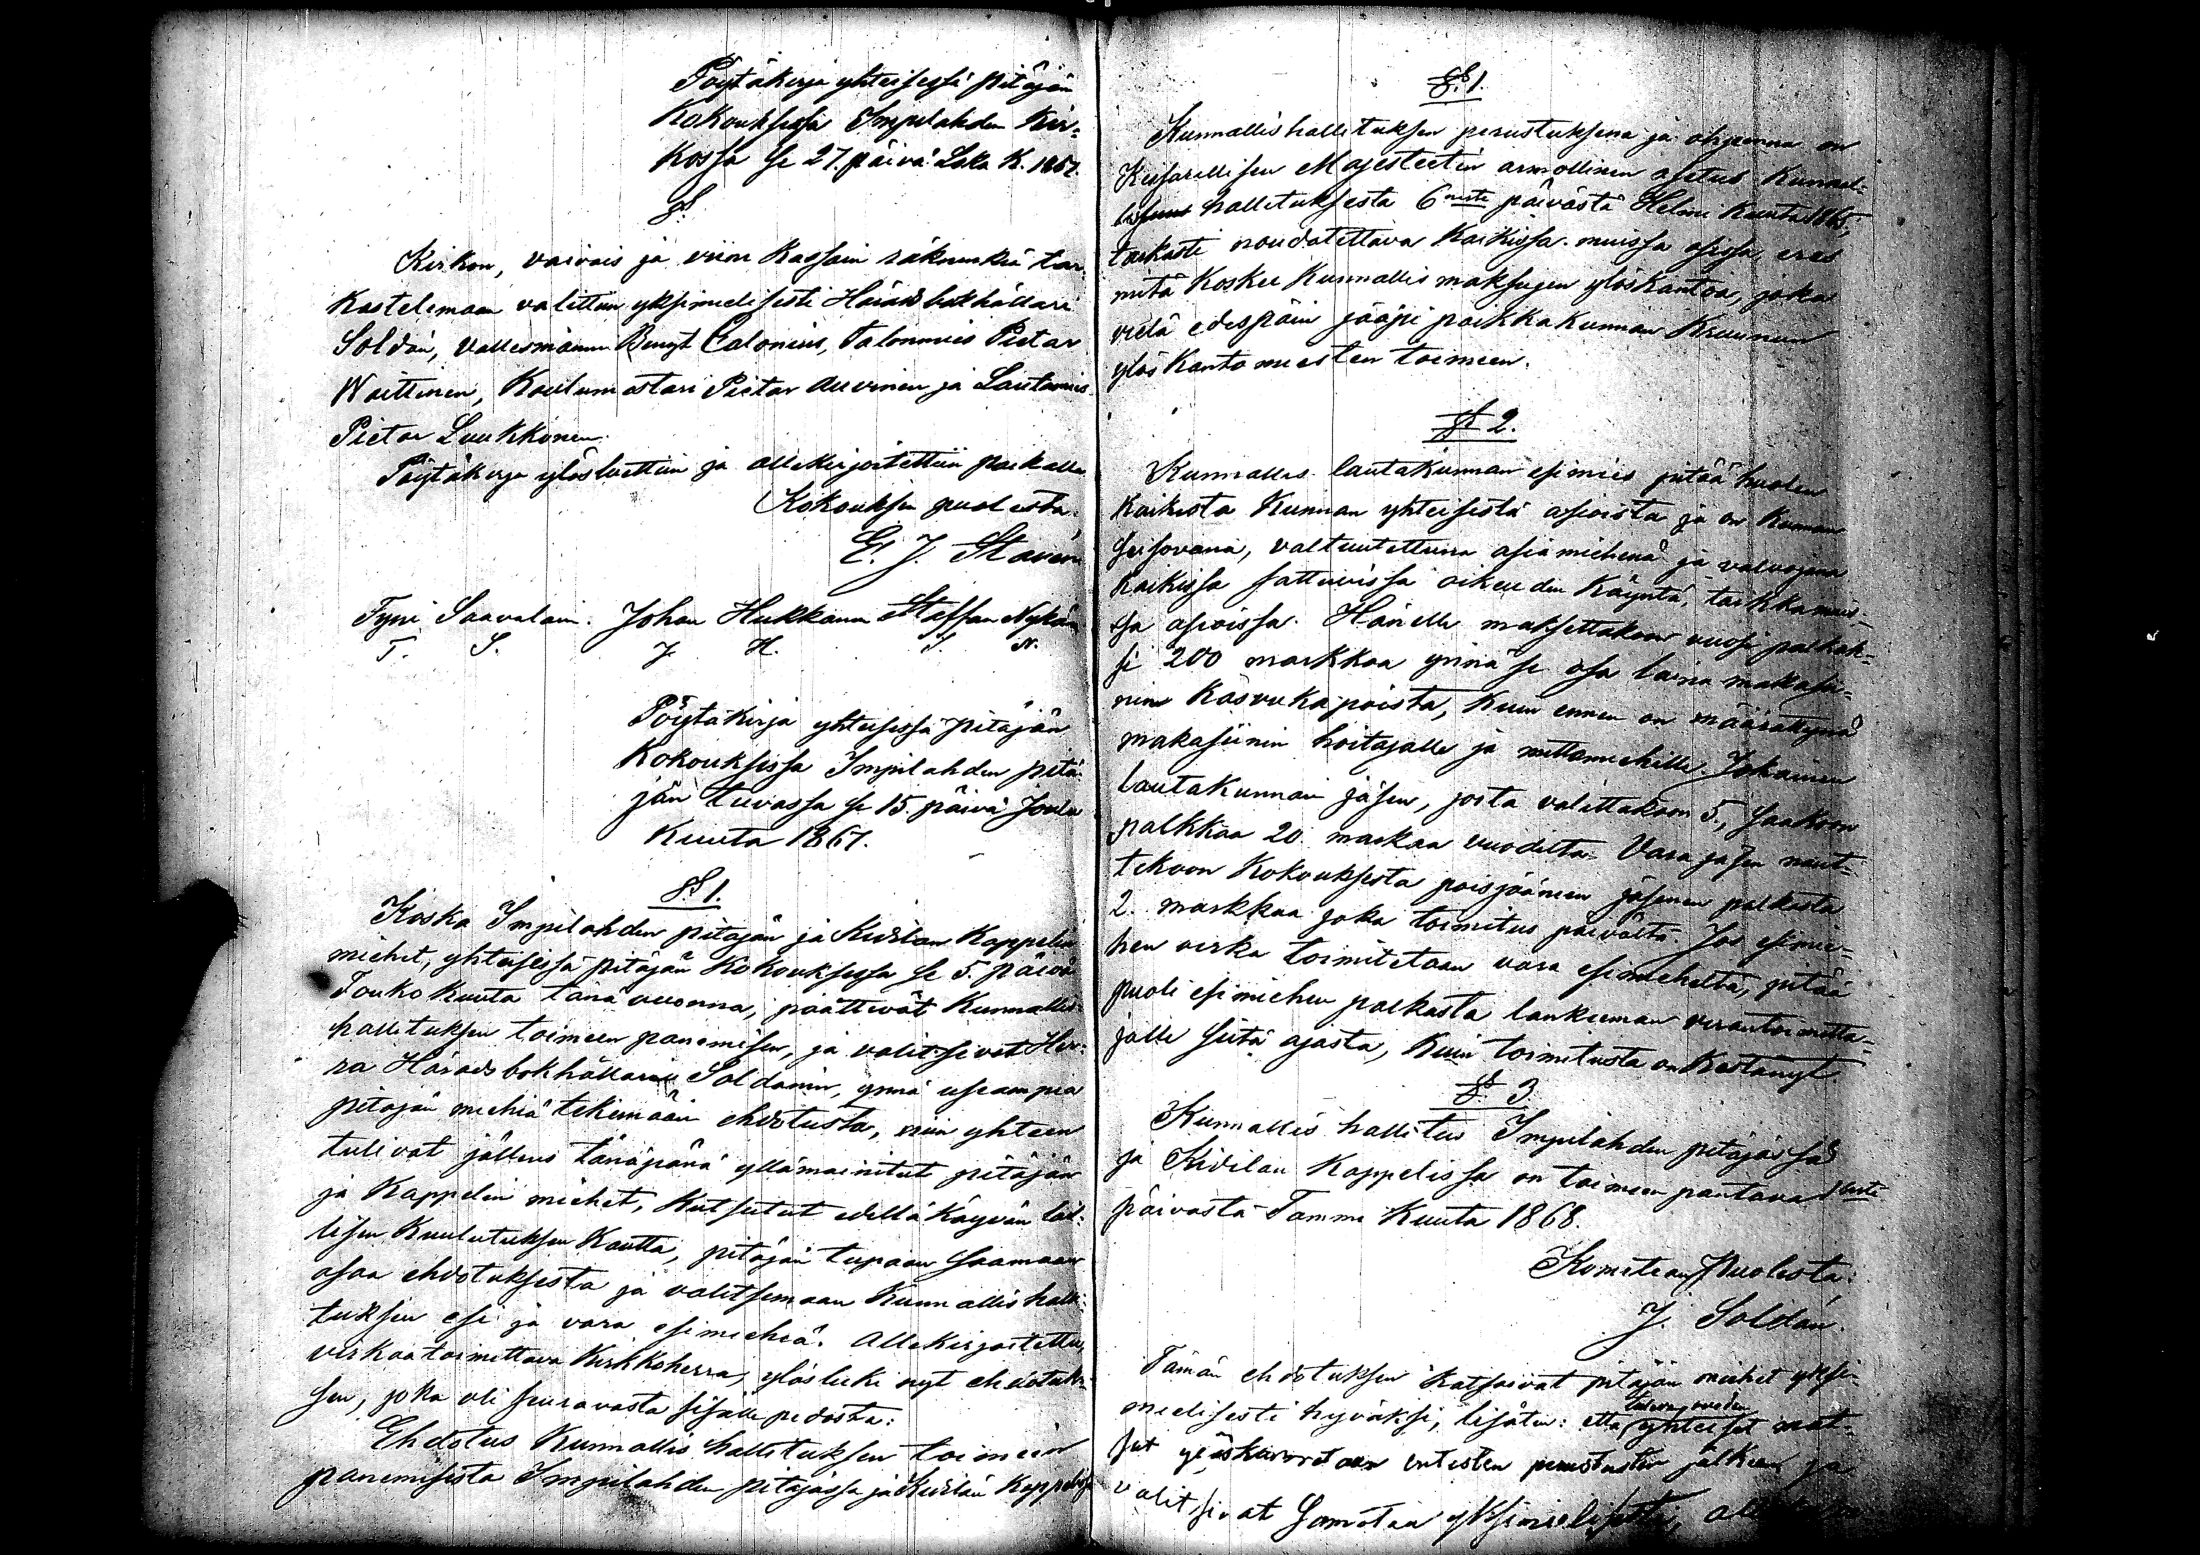 Pöytäkirja yhteisessä pitäjän
Kokouksessa Impilahden Kir-
kossa se 27. päivä Loka K. 1867.
§.
Kirkon, vaivais ja viina Kassain räkninkiä tar-
kastelemaan valittiin yksimielisesti Häradsbokhållari
Soldan, Vallesmanni Bengt Calonius, Talonmies Pietar
Waittinen, Koulumestari Pietar Auvinen ja Lautamies
Pietar Luukkonen.
Pöytäkirja ylösluettiin ja allekirjoitettiin paikalla
Kokouksen puolesta:
E. J. Stavén
Tyni Saavalain. Johan Hukkanen Staffan Nykän
T. S. J. H. S. N.
Pöytäkirja yhteisessä pitäjän
Kokouksessa Impilahden pitä-
jän tuvassa se 15. päivä Joulu
Kuuta 1867.
§ 1.
Koska Impilahden pitäjän ja Kidilan Kappelin
miehet, yhteisessä pitäjän Kokouksessa se 5. päivä
Toukokuuta tänä vuonna, päättivät Kunnallis-
hallituksen toimeen panemisen, ja valitsivat Her-
ra Häradsbokhållari Soldanin, ynnä useampia
pitäjän miehiä tekemään ehdotusta, niin yhteen
tulivat jällens tänäpänä yllämainitut pitäjän
ja Kappelin miehet, Kutsutut edelläkäyvän lail-
lisen Kuulutuksen Kautta, pitäjän tupaan saamaan
osaa ehdotuksesta ja valitsemaan Kunnallishalli-
tuksen esi ja vara esimiehiä. Allekirjoitettu
virkaatoimittava Kirkkoherra, ylösluki nyt ehdotuk-
sen, joka oli seuravasta sisälle pidosta:
Ehdotus Kunnallis hallituksen toimeen
panemisesta Impilahden pitäjässä ja Kidilän Kappelissa
§. 1.
Kunnallishallituksen perustuksena ja ohjeena on
Keisarillisen Majesteetin armollinen asetus Kunnal-
hallituksesta 6nesta päivästä Helmi Kuuta 1865,
tarkasti noudatettava Kaikissa muissa asissa, eres
mitä Koskee Kunnallismaksujen ylöskantoa, joka
vielä edespäin jääpi paikkakunnan Kruunun
ylöskantomiesten toimeen.
§ 2.
Kunnallis lautakunnan esimies pitää huolen
Kaikista Kunnan yhteisistä asioista ja on Kunnan
seisovana, valtuutettuna asiamiehenä ja valvojana
Kaikissa sattuvissa oikeuden Käyntä, taikka muis-
sa asioissa. Hänelle maksettakoon vuosi palkak-
si 200 markkaa ynnä se osa laina makasii-
nin Kasvukapoista, Kuin ennen on määrätynä
makasiinin hoitajalle ja mittamiehille. Jokainen
lautakunnan jäsen, joita valittakoon 5, saakoon
palkkaa 20 markaa vuodelta. Vara jäsen naut-
tekoon Kokouksesta poisjääneen jäsenen palkasta
2. markkaa joka toimitus päivältä. Jos esimie-
hen virka toimitetaan vara esimieheltä, pitää
puoli esimiehen palkasta lankeeman virantoimitta-
jalle siitä ajasta, Kuin toimitusta on Kestänyt.
§ 3.
Kunnallis hallitus Impilahden pitäjässä
ja Kidilan Kappelissa on toimeen pantava 1sestä
päivästä Tammi Kuuta 1868.
Komitean Puolesta:
J. Soldan.
Tämän ehdotuksen Katsoivat pitäjän miehet yksi-
mielisesti hyväksi, lisäten: että yhteiset mak-
sut ylöskannetaan entisten perustusten jälkeen ja
valitsivat samotaa yksimielisesti,